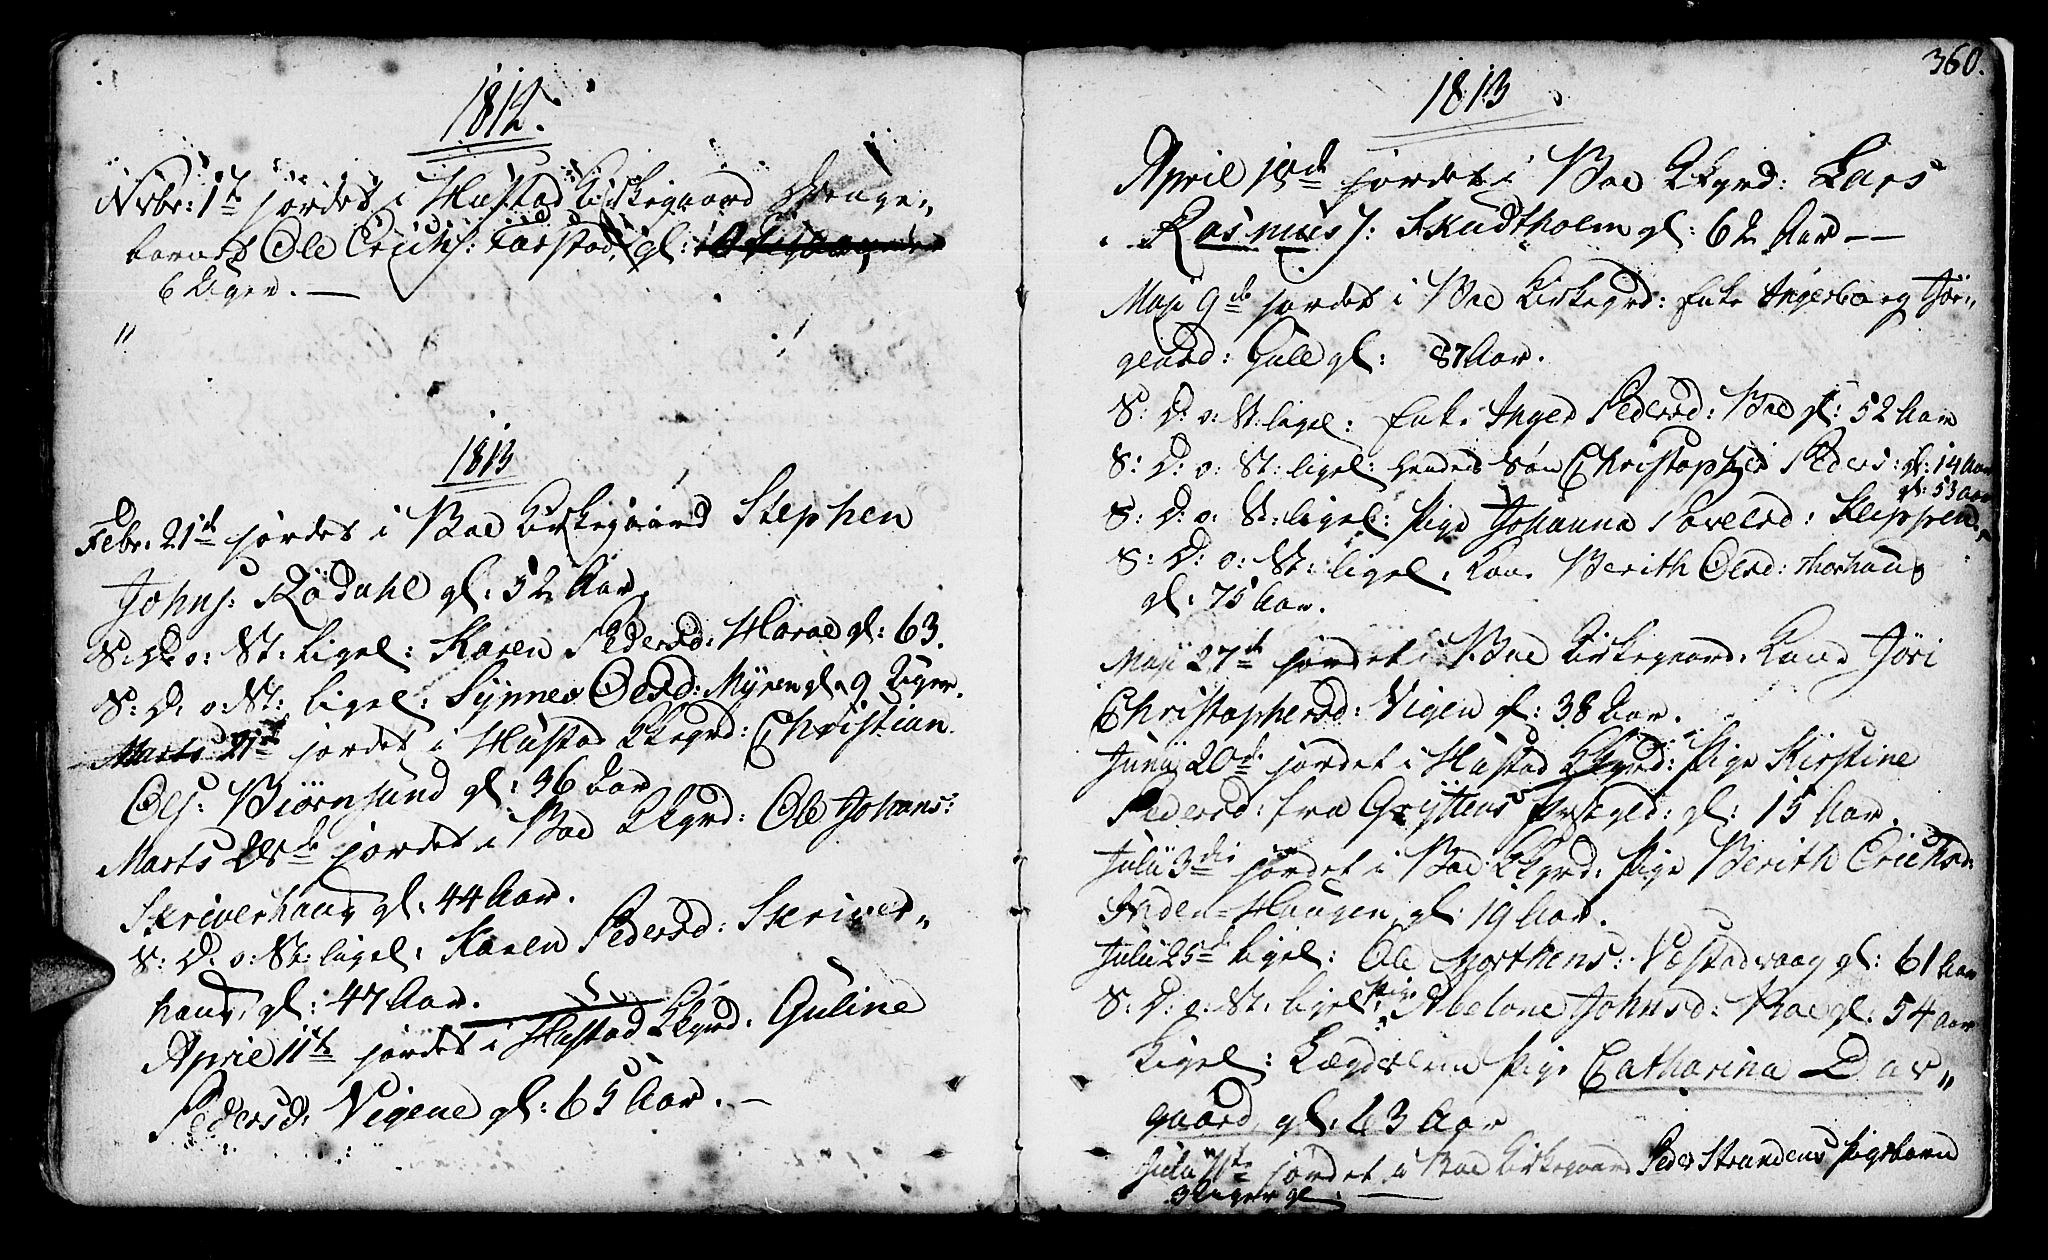 1812.
Nvbr: 1te jordet i Hustad Kirkegaard Drenge„
barnet Ole Erichs: Farstad, gl:
6 Uger. —
"
1813
Febr: 21de jordet i Boe Kirkegaard Stephen
Johns: Rödahl gl: 52 Aar.
S: D: o: St: ligel: Karen Pedersd: Harae gl: 63.
S: D: o: St: ligel: Synnev Olsd: Myren gl. 9 Uger.
Marts 21de jordet i Hustad Kkgrd: Christian
Ols: Biørnsund gl: 36 Aar
Marts 28de jordet i Boe Kkgrd: Ole Johans:
Skriverhaug gl: 44 Aar.
S: D: o: St: ligel: Karen Pedersd: Skriver„
haug, gl: 47 Aar.
April 11te jordet i Hustad Kkgrd. Guline
Pedersd: Vigene gl: 65 Aar. —
360.
1813
April 19de jordet i Boe Kkgrd: Lars
Rasmus: Skudtholm gl: 62 Aar —
Maji 9de jordet i Boe Kirkegrd: Enke Ingeborg Jör„
gensd: Gule gl: 87 Aar.
S: D: o: St: ligel: Enke Inger Pedersd: Boe gl: 52 Aar
S: D: o: St: ligel: hendes Søn Christopher Peders: gl: 14 Aar
S: D: o: St: ligel: Pige Johanna Povelsd: Kleppen gl: 53 Aar
S: D: o: St: ligel: Kone Berith Olsd: Thorhaug
gl: 75 Aar.
Maji 27de jordet i Boe Kirkegaard. Kone Jöri
Christophersd: Vigen gl: 38 Aar.
Junii 20de jordet i Hustad Kkgrd: Pige Kirstine
Pedersd: fra Gryttens Præstgld: gl: 15 Aar.
Julii 3die jordet i Boe Kkgrd: Pige Berith Erichsd:
Inden-Haugen gl: 19 Aar.
Julii 25de ligel: Ole Morthens: Vestadvaag gl: 61 Aar
S: D: o: St: ligel: Pige Abelone Johnsd: Boe gl: 54 Aar
Ligel: Lægdslem Pige Catharina Dar„
gaard, gl: 43 Aar
Julii 11te jordet i Boe Kirkegaard Peder Strandens Pigebarn
3 Uger gl. —